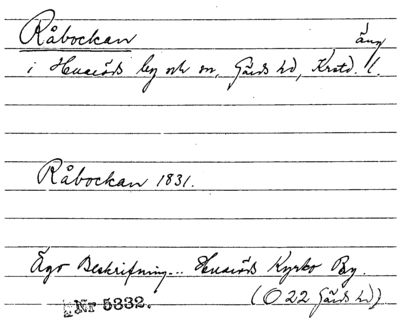 Råbockan äng
i Huaröds by och sn, Gärds hd, Krstd. l.
Råbockan 1831.
Ägo Beskrifning... Huaröds Kyrko By.
(O 22 Gärds hd)
Nr 5332.